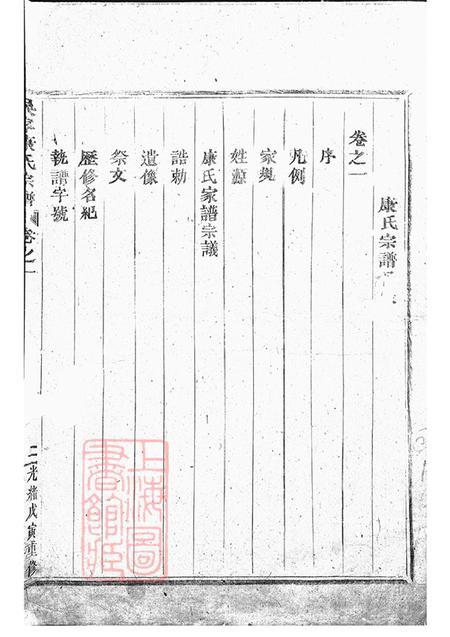 康氏宗譜
卷之一
序
凡例
家規
姓源
康氏家譜宗議
誥勅
遺像
祭文
歷修名紀
執譜字號
康氏宗譜
卷之一
二
光緒戊寅重修
上海圖書館藏